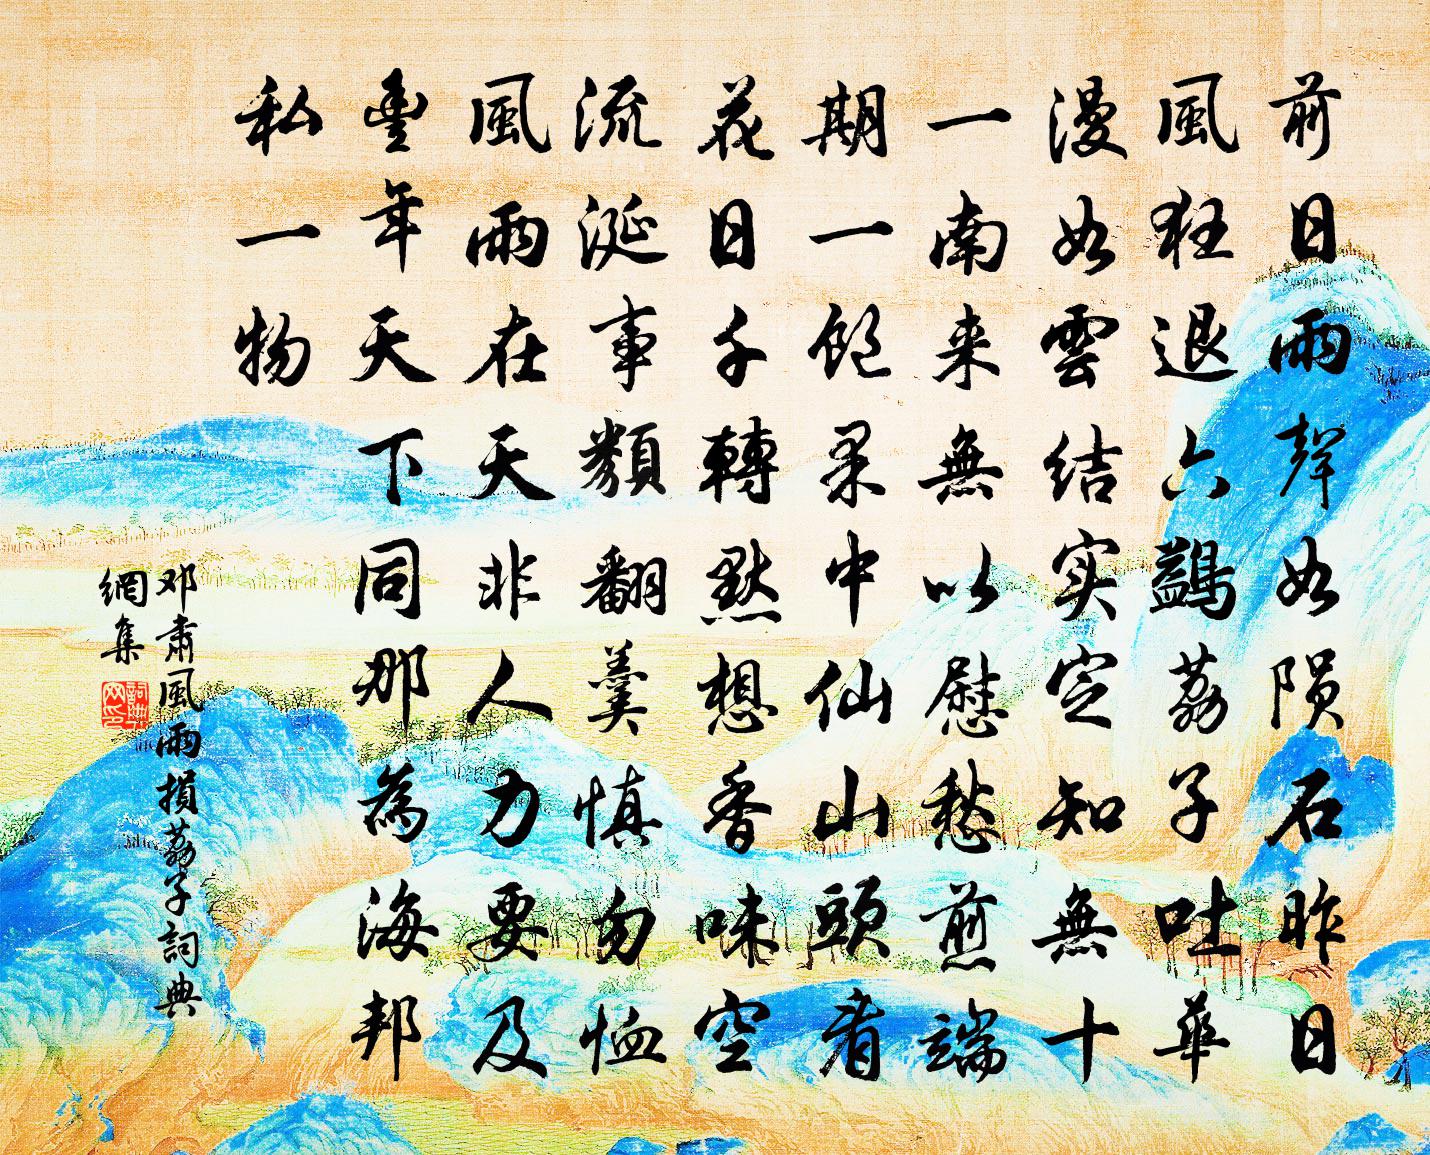 前日雨聲如陨石昨日
風狂退六鷁荔子吐華
漫如雲结实定知無十
一南来無以慰愁煎端
期一饱果中仙山頭看
花日千轉黙想香味空
流涎事類翻羹慎勿恤
風雨在天非人力要及
豊年天下同那為海邦
私一物
邓肃風雨損荔子詞典
網集